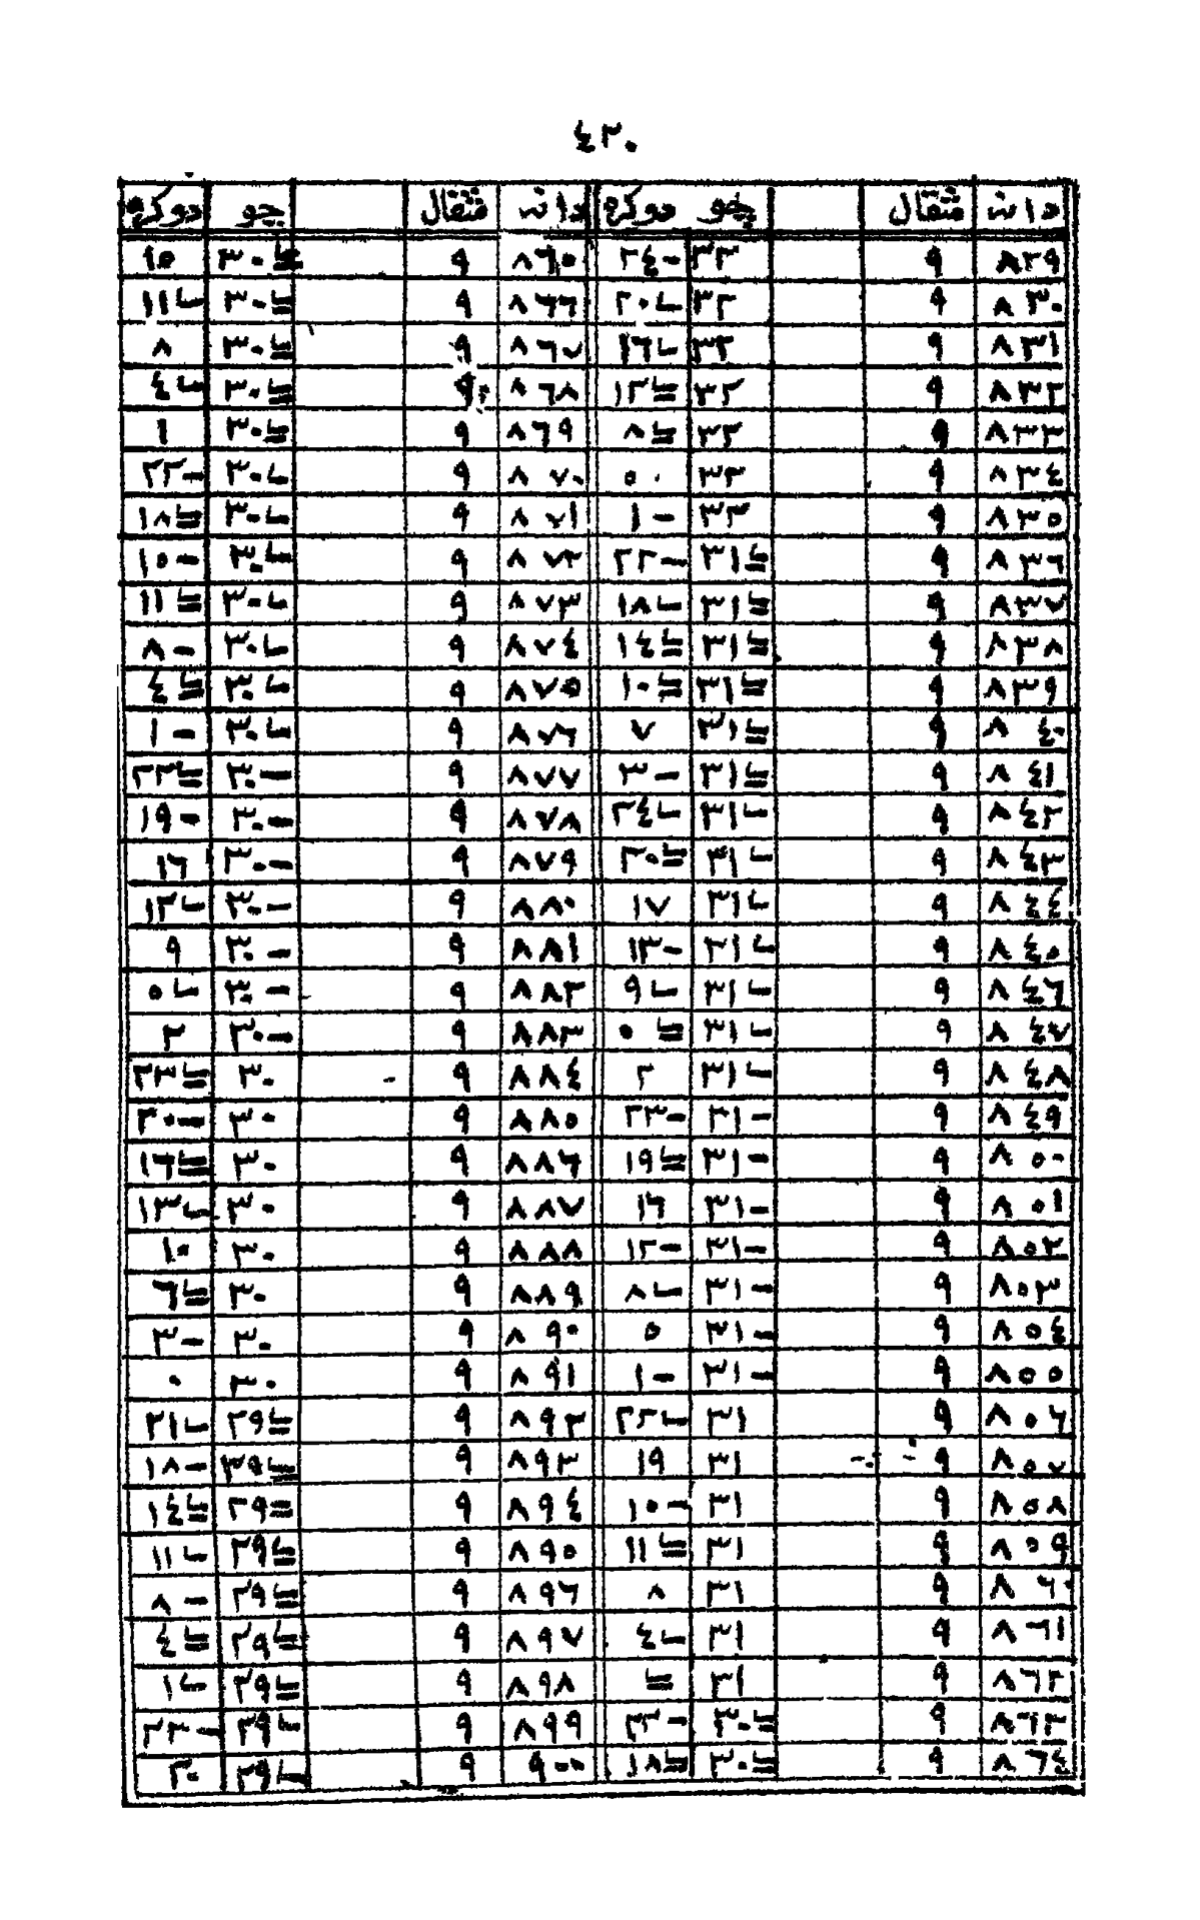 ٤٢٠
دانه مثقال چو دوكره دانه مثقال چو دوكره
٨٢٩ ٩ ٣٢ ٢٤- ٨٦٥ ٩ ٣٠ ١٥
٨٣٠ ٩ ٣٢ ٢٠ ٨٦٦ ٩ ٣٠ ١١
٨٣١ ٩ ٣٢ ١٦ ٨٦٧ ٩ ٣٠ ٨
٨٣٢ ٩ ٣٢ ١٢ ٨٦٨ ٩ ٣٠ ٤
٨٣٣ ٩ ٣٢ ٨ ٨٦٩ ٩ ٣٠ ١
٨٣٤ ٩ ٣٢ ٥ ٨٧٠ ٩ ٣٠ ٢٢-
٨٣٥ ٩ ٣٢ ١- ٨٧١ ٩ ٣٠ ١٨
٨٣٦ ٩ ٣١ ٢٢- ٨٧٢ ٩ ٣٠ ١٥-
٨٣٧ ٩ ٣١ ١٨ ٨٧٣ ٩ ٣٠ ١١
٨٣٨ ٩ ٣١ ١٤ ٨٧٤ ٩ ٣٠ ٨-
٨٣٩ ٩ ٣١ ١٠ ٨٧٥ ٩ ٣٠ ٤
٨٤٠ ٩ ٣١ ٧ ٨٧٦ ٩ ٣٠ ١-
٨٤١ ٩ ٣١ ٣- ٨٧٧ ٩ ٣٠- ٢٢
٨٤٢ ٩ ٣١ ٢٤ ٨٧٨ ٩ ٣٠- ١٩-
٨٤٣ ٩ ٣١ ٢٠ ٨٧٩ ٩ ٣٠- ١٦
٨٤٤ ٩ ٣١ ١٧ ٨٨٠ ٩ ٣٠- ١٢
٨٤٥ ٩ ٣١ ١٣- ٨٨١ ٩ ٣٠- ٩
٨٤٦ ٩ ٣١ ٩ ٨٨٢ ٩ ٣٠- ٥
٨٤٧ ٩ ٣١ ٥ ٨٨٣ ٩ ٣٠- ٢
٨٤٨ ٩ ٣١ ٢ ٨٨٤ ٩ ٣٠ ٢٣
٨٤٩ ٩ ٣١- ٢٣- ٨٨٥ ٩ ٣٠ ٢٠-
٨٥٠ ٩ ٣١- ١٩ ٨٨٦ ٩ ٣٠ ١٦
٨٥١ ٩ ٣١- ١٦ ٨٨٧ ٩ ٣٠ ١٣
٨٥٢ ٩ ٣١- ١٢- ٨٨٨ ٩ ٣٠ ١٠
٨٥٣ ٩ ٣١- ٨ ٨٨٩ ٩ ٣٠ ٦
٨٥٤ ٩ ٣١- ٥ ٨٩٠ ٩ ٣٠ ٣-
٨٥٥ ٩ ٣١- ١- ٨٩١ ٩ ٣٠ ٠
٨٥٦ ٩ ٣١ ٢٢ ٨٩٢ ٩ ٢٩ ٢١
٨٥٧ ٩ ٣١ ١٩ ٨٩٣ ٩ ٢٩ ١٨-
٨٥٨ ٩ ٣١ ١٥- ٨٩٤ ٩ ٢٩ ١٤
٨٥٩ ٩ ٣١ ١١ ٨٩٥ ٩ ٢٩ ١١
٨٦٠ ٩ ٣١ ٨ ٨٩٦ ٩ ٢٩ ٨-
٨٦١ ٩ ٣١ ٤ ٨٩٧ ٩ ٢٩ ٤
٨٦٢ ٩ ٣١ ٨٩٨ ٩ ٢٩ ١
٨٦٣ ٩ ٣٠ ٢٢- ٨٩٩ ٩ ٢٩ ٢٣-
٨٦٤ ٩ ٣٠ ١٨ ٩٠٠ ٩ ٢٩ ٢٠